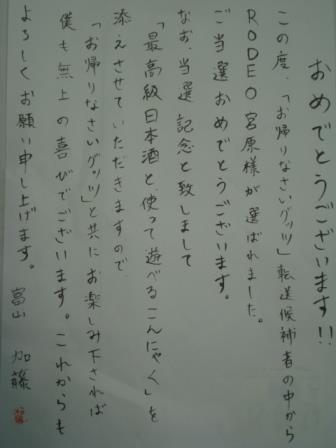 おめでとうございます!!
この度、「お帰りなさいグッツ」転送候補者の中から
RODEO宮原様が選ばれました。
ご当選おめでとうございます。
なお、当選記念と致しまして
「最高級日本酒と、使って遊べるこんにゃく」を
添えさせていただきますので
「お帰りなさいグッツ」と共にお楽しみ下されば
僕も無上の喜びでございます。これからも
よろしくお願い申し上げます。
富山 加藤